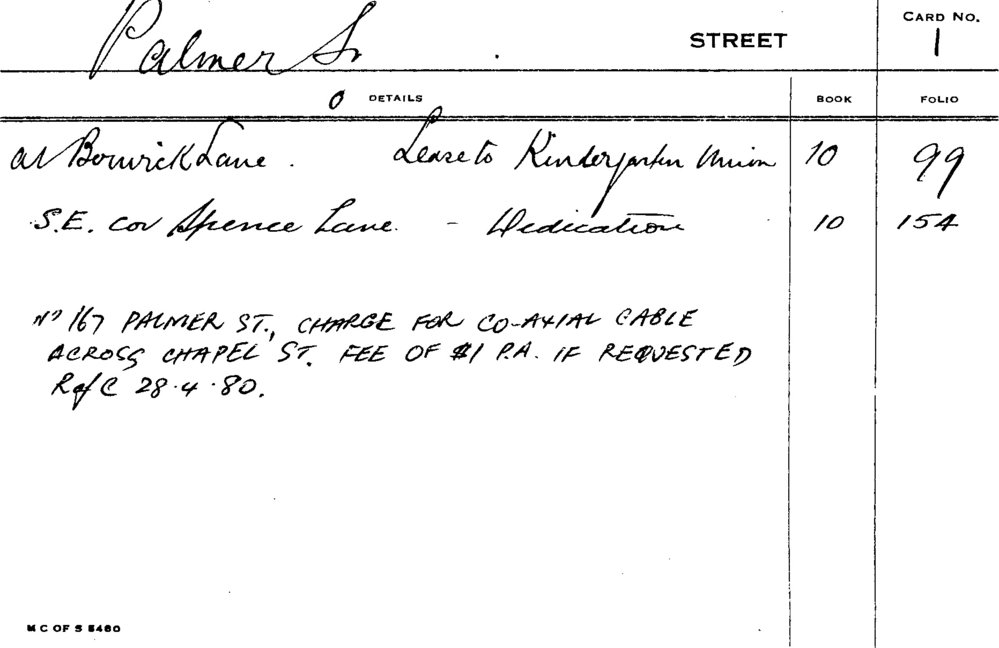 Palmer St. STREET CARD No. 1
DETAILS BOOK FOLIO
at Borwick Lane. Lease to Kindergarten Union 10 99
S.E. cor Spence Lane. - Dedication 10 154
No 167 PALMER ST., CHARGE FOR CO-AXIAL CABLE
ACROSS CHAPEL ST. FEE OF $1 P.A. IF REQUESTED
R of C 28.4.80.
M C OF S 5460